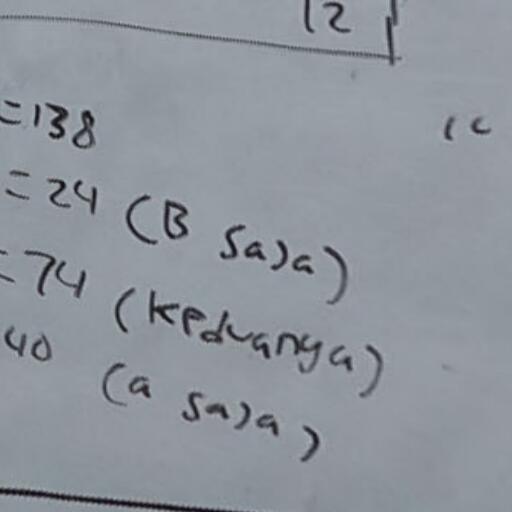 12
=138
=24 (B saja)
=74 (keduanya)
40 (a saja)